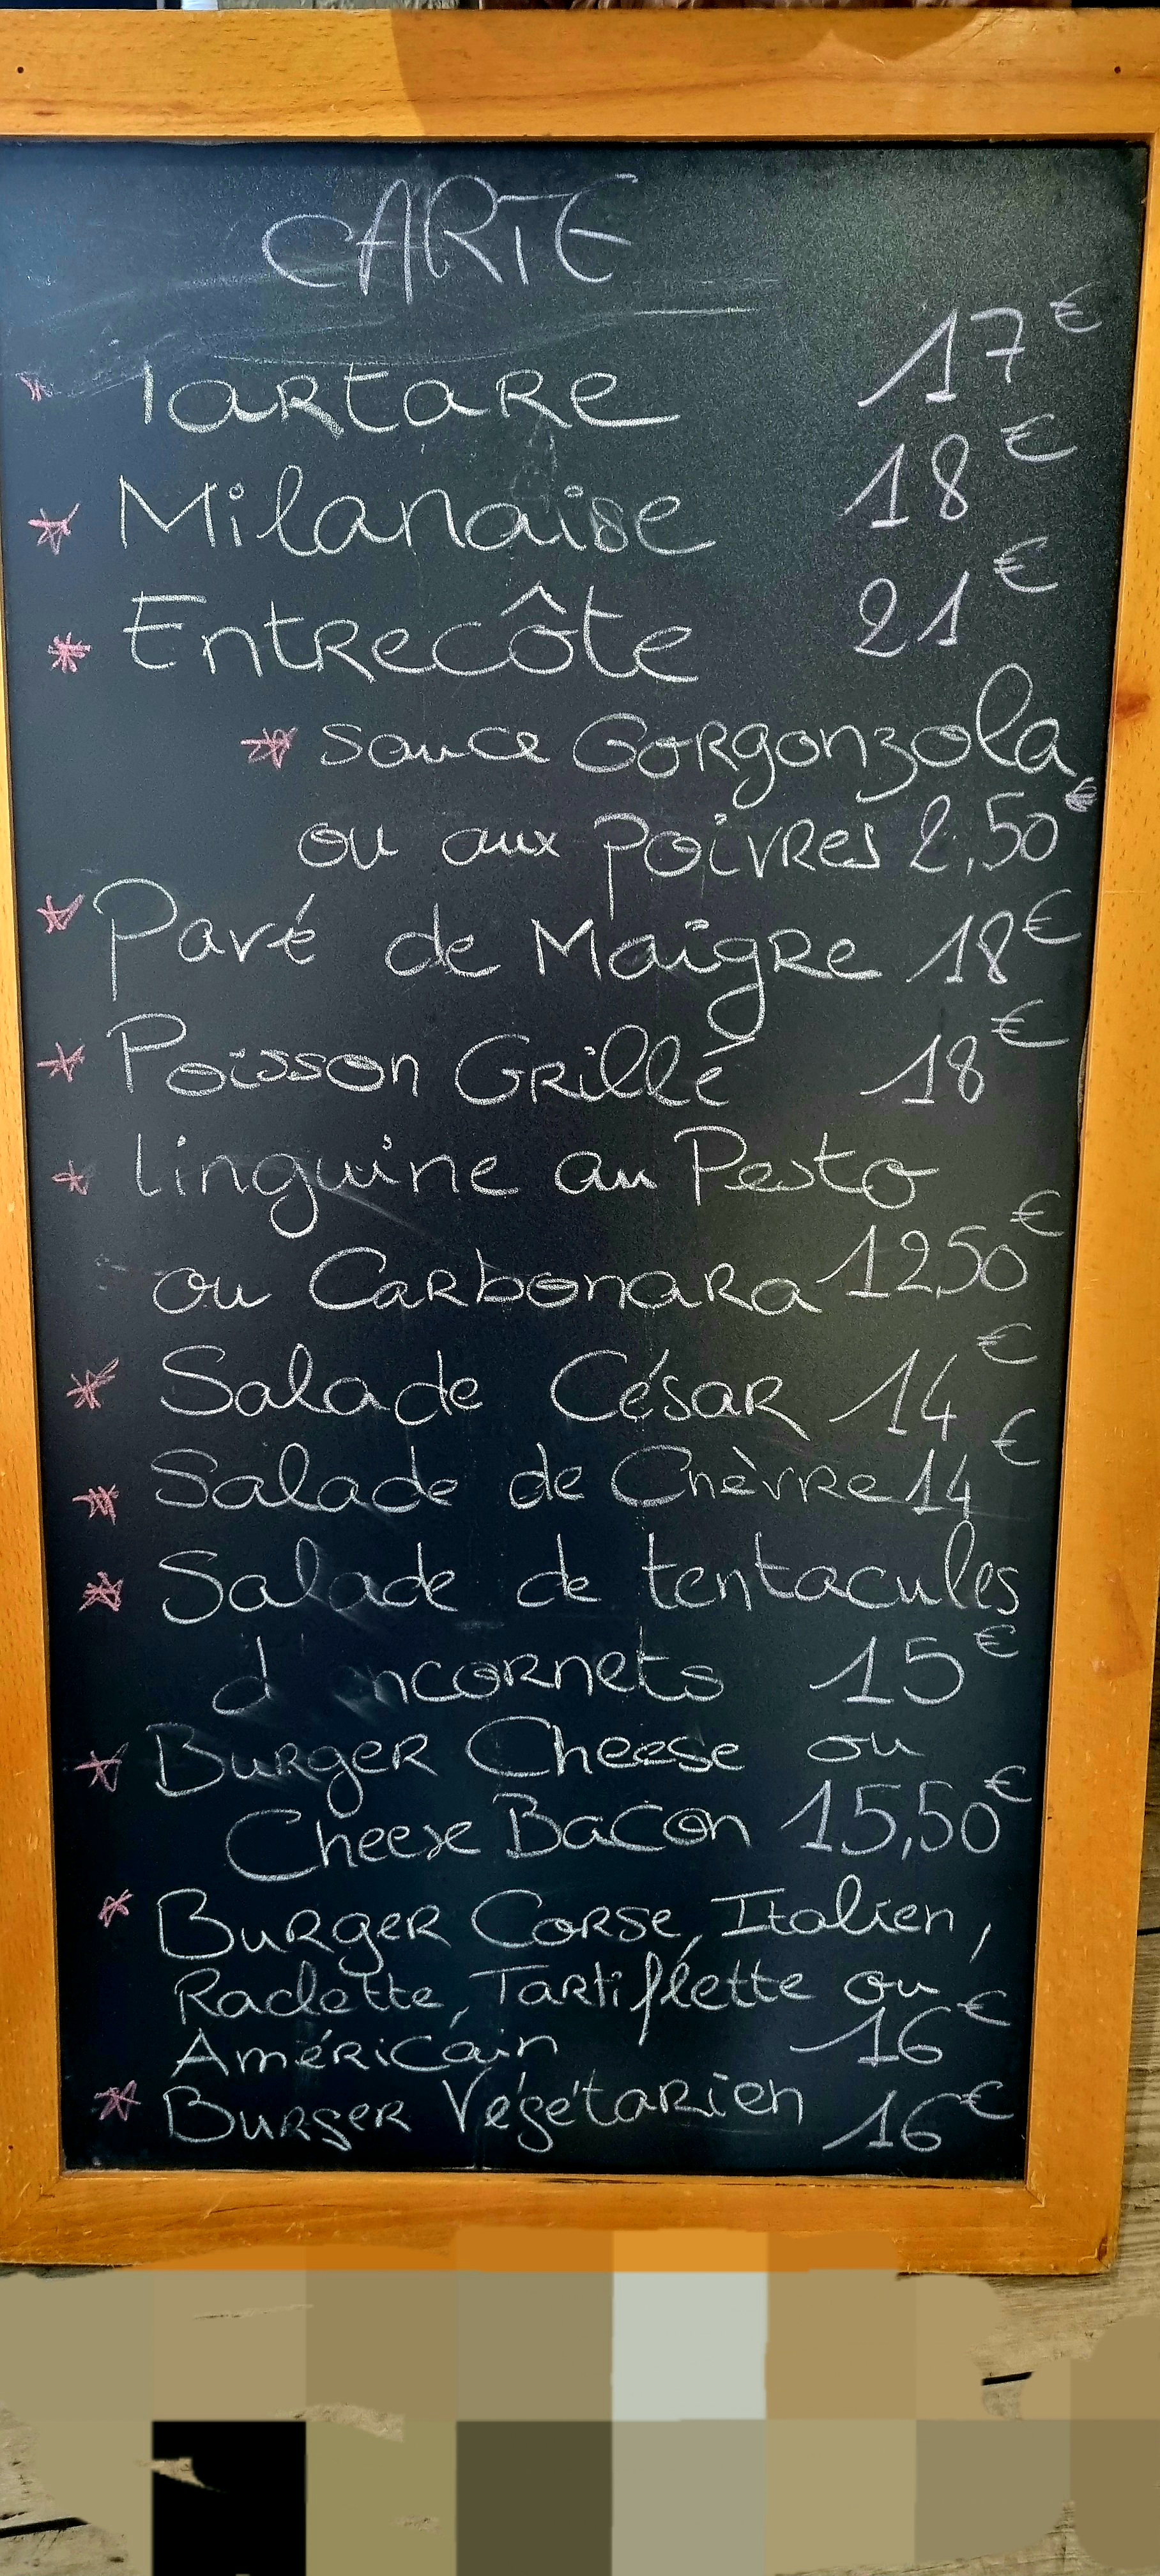 CARTE
* Tartare 17€
* Milanaise 18€
* Entrecôte 21€
* Sauce Gorgonzola
ou aux poivres 2,50€
* Pavé de Maigre 18€
* Poisson Grillé 18€
* linguine au Pesto
ou Carbonara 12,50€
* Salade César 14€
* Salade de Chèvre 14€
* Salade de tentacules
d'encornets 15€
* Burger Cheese ou
Cheese Bacon 15,50€
* Burger Corse, Italien,
Raclette, Tartiflette ou
Américain 16€
* Burger Végétarien 16€